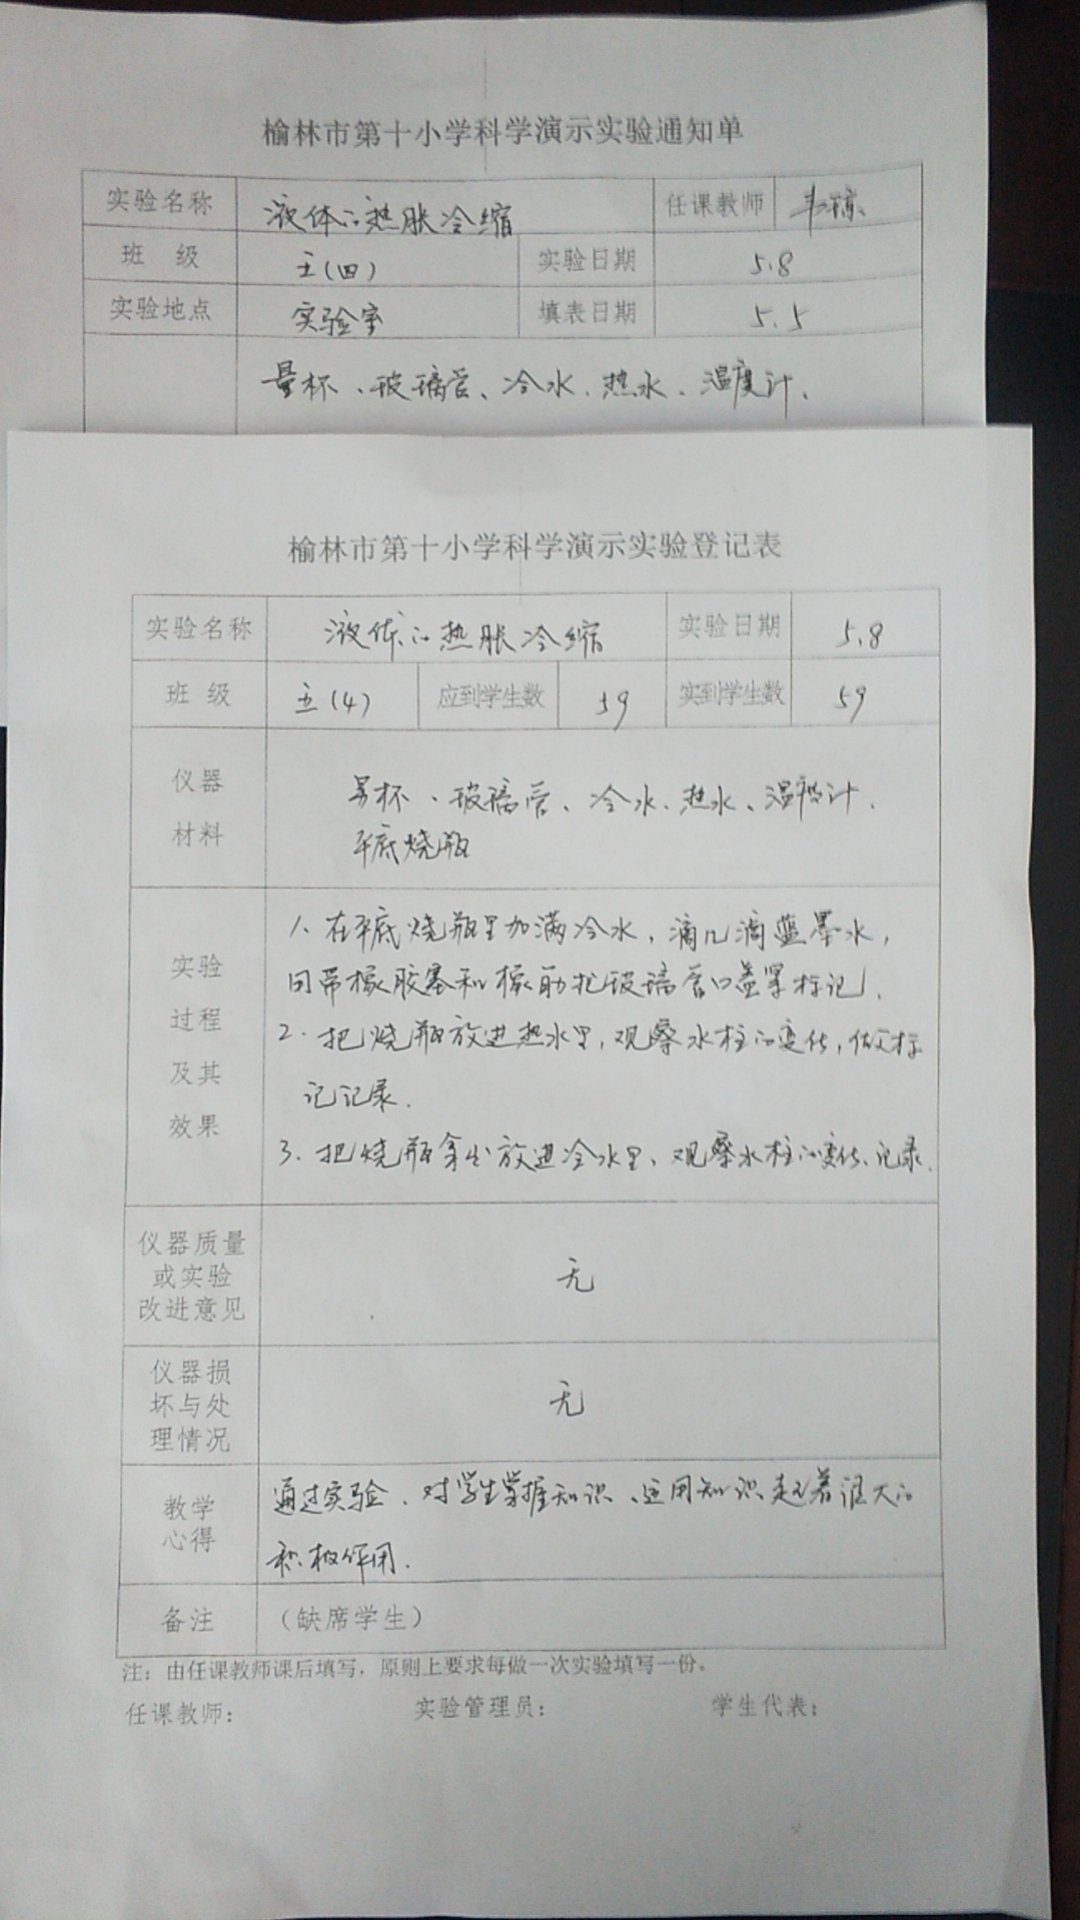 榆林市第十小学科学演示实验通知单
实验名称 液体的热胀冷缩 任课教师
班 级 五(四) 实验日期 5.8
实验地点 实验室 填表日期 5.5
量杯、玻璃管、冷水、热水、温度计、
榆林市第十小学科学演示实验登记表
实验名称 液体的热胀冷缩 实验日期 5.8
班 级 五(4) 应到学生数 59 实到学生数 59
仪器
材料
量杯、玻璃管、冷水、热水、温度计、
平底烧瓶
实验
过程
及其
效果
1、在平底烧瓶里加满冷水,滴几滴蓝墨水,
用带橡胶塞和橡筋把玻璃管口盖罩标记.
2. 把烧瓶放进热水里,观察水柱的变化,做标
记记录.
3. 把烧瓶拿出放进冷水里、观察水柱的变化、记录.
仪器质量
或实验
改进意见
无
仪器损
坏与处
理情况
无
教学
心得
通过实验、对学生掌握知识、运用知识起着很大的
积极作用.
备注 (缺席学生)
注:由任课教师课后填写,原则上要求每做一次实验填写一份。
任课教师: 实验管理员: 学生代表: